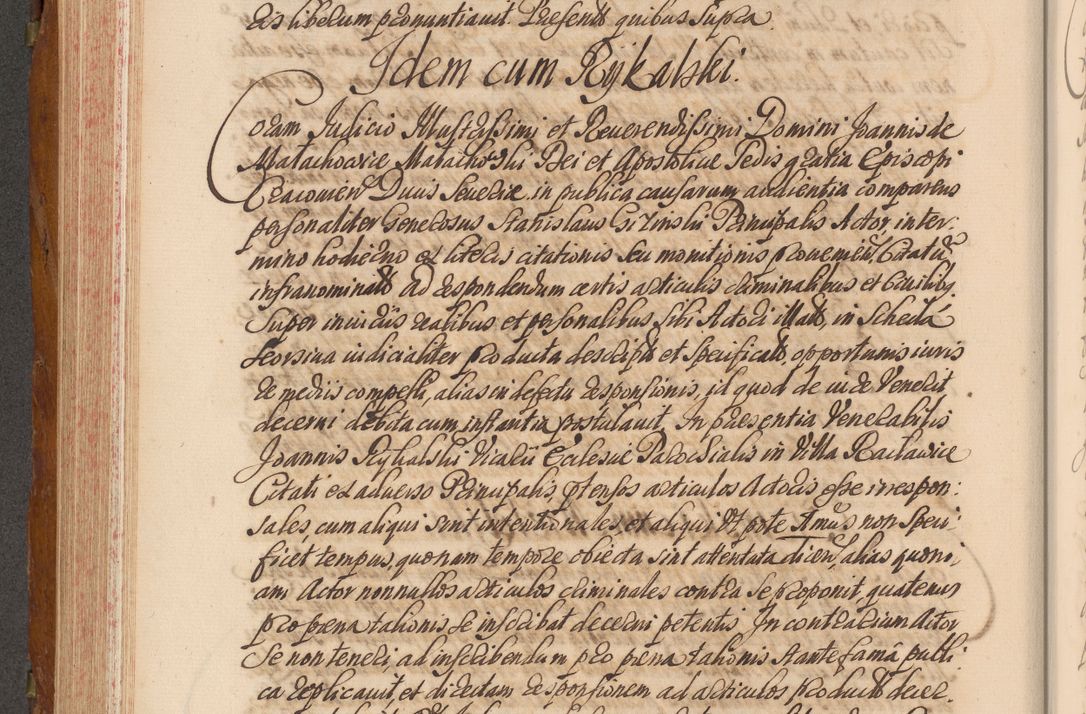 ris liberum pronuntiavit. Presentib quibus Supra.
Idem cum Rykalski.
Coram Judicio Illustrissimi et Reverendissimi Domini Joannis de
Małachowice Małachowski Dei et Apostolicae Sedis gratia Episcopi
Cracovien Ducis Severiae in publica causarum audientia comparens
personaliter Generosus Stanislaus Principalis Actor, in ter-
mino hodierno ex literis citationis seu monitionis provenien, Citatū
infranominatū ad respondendum certis articulis criminalibus et Civilibq
Super iniuriis realibus et personalibus sibi Actori illatis, in Scheda
Seorsiva iudicialiter producta descriptis et specificatis, opportunis iuris
remediis compelli, alias in defectu responsionis, id quod de iure Venerit
decerni debita cum instantia postulavit. In praesentia Venerabilis
Joannis Rykalski Vicarii Ecclesiae Parochialis in Villa Racławice
Citati ex adverso Principalis, ptensos articulos Actoris esse irrespon:
sales, cum aliqui sint intentionales, et aliqui Ut pote Xmus non speci-
ficet tempus, quonam tempore obiecta sint attentata dicen, alias quoni-
am Actor nonnullos articulos criminales contra se proponit, quatenus
pro paena talionis se inscribat decerni petentis. In contrarium Actor
Se non teneri, ad inscribendum pro paena talionis stante fama publi-
ca replicavit, et directam responsionem ad articulos, productos decer-